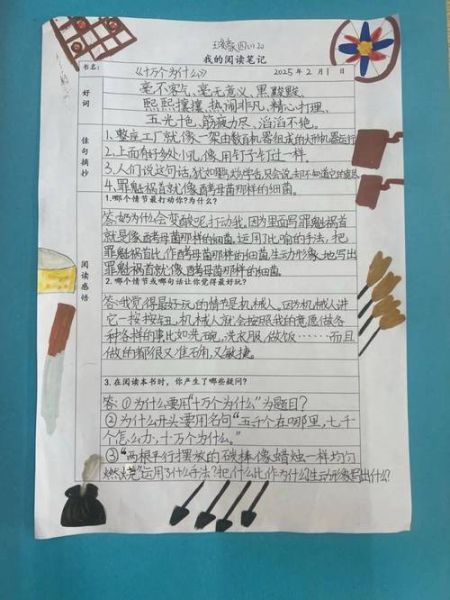 四(1)20
我的阅读笔记
书名:
《十万个为什么》
2025年2月1日
好词
毫不客气、毫无意义、黑黢黢、
熙熙攘攘、热闹非凡、精心打理、
五光十色、筋疲力尽、滔滔不绝。
佳句摘抄
1、整座工厂就像一架由数百机器组成的大形机器运行
2、上面有好多处小孔,像用钉子钉过一样。
3、人们说这句话,犹如鹦鹉学舌,只会说,却不知道它的意思
4、罪魁祸首就像酵母菌那样的细菌。
阅读感悟
1.哪个情节最打动你?为什么?
答:奶为什么会变酸呢打动我,因为里面写罪魁祸首
就是像酵母菌那样的细菌。运用了比喻的手法,把
罪魁祸首比作酵母菌那样的细菌生动形象地写出
罪魁祸首就像酵母菌那样的细菌。
2.哪个情节或哪句话让你觉得最好玩?
答:我觉得最好玩的情节是机械人。因为机械人进
它一按按钮,机械人就会按照我的意愿做各
种各样的事比如洗碗,洗衣服,做饭……而且
做的都很又准确,又敏捷。
3.在阅读本书时,你产生了哪些疑问?
答:①为什么要用“十万个为什么”为题目?
②为什么开头要用名句“五千个在哪里,七千
个怎么办,十万个为什么。”
③“两根平行摆放的碳棒,像蜡烛一样均匀
燃烧”运用了什么手法?把什么比作为什么生动形象写出什么?